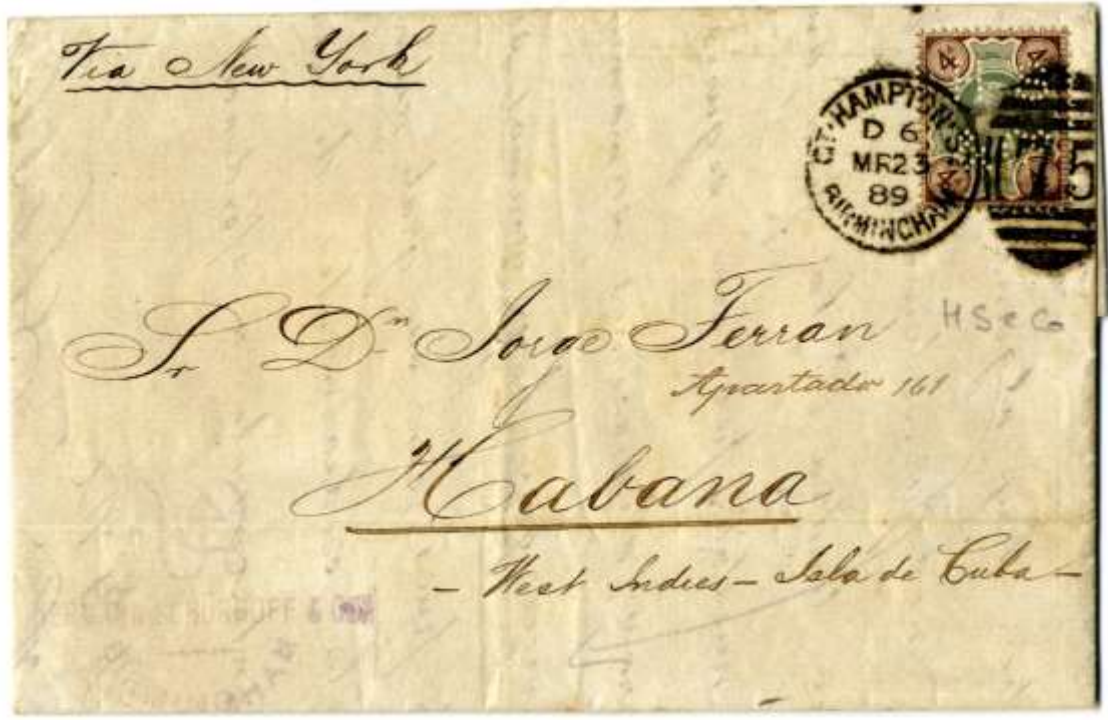 Via New York
4 4
GT. HAMPTON. ST
D 6
MR 23
89
BIRMINGHAM
75
4 4
Sr Dn Jorge Ferrán
HS & Co
Apartado 161
Habana
- West Indies - Isla de Cuba -